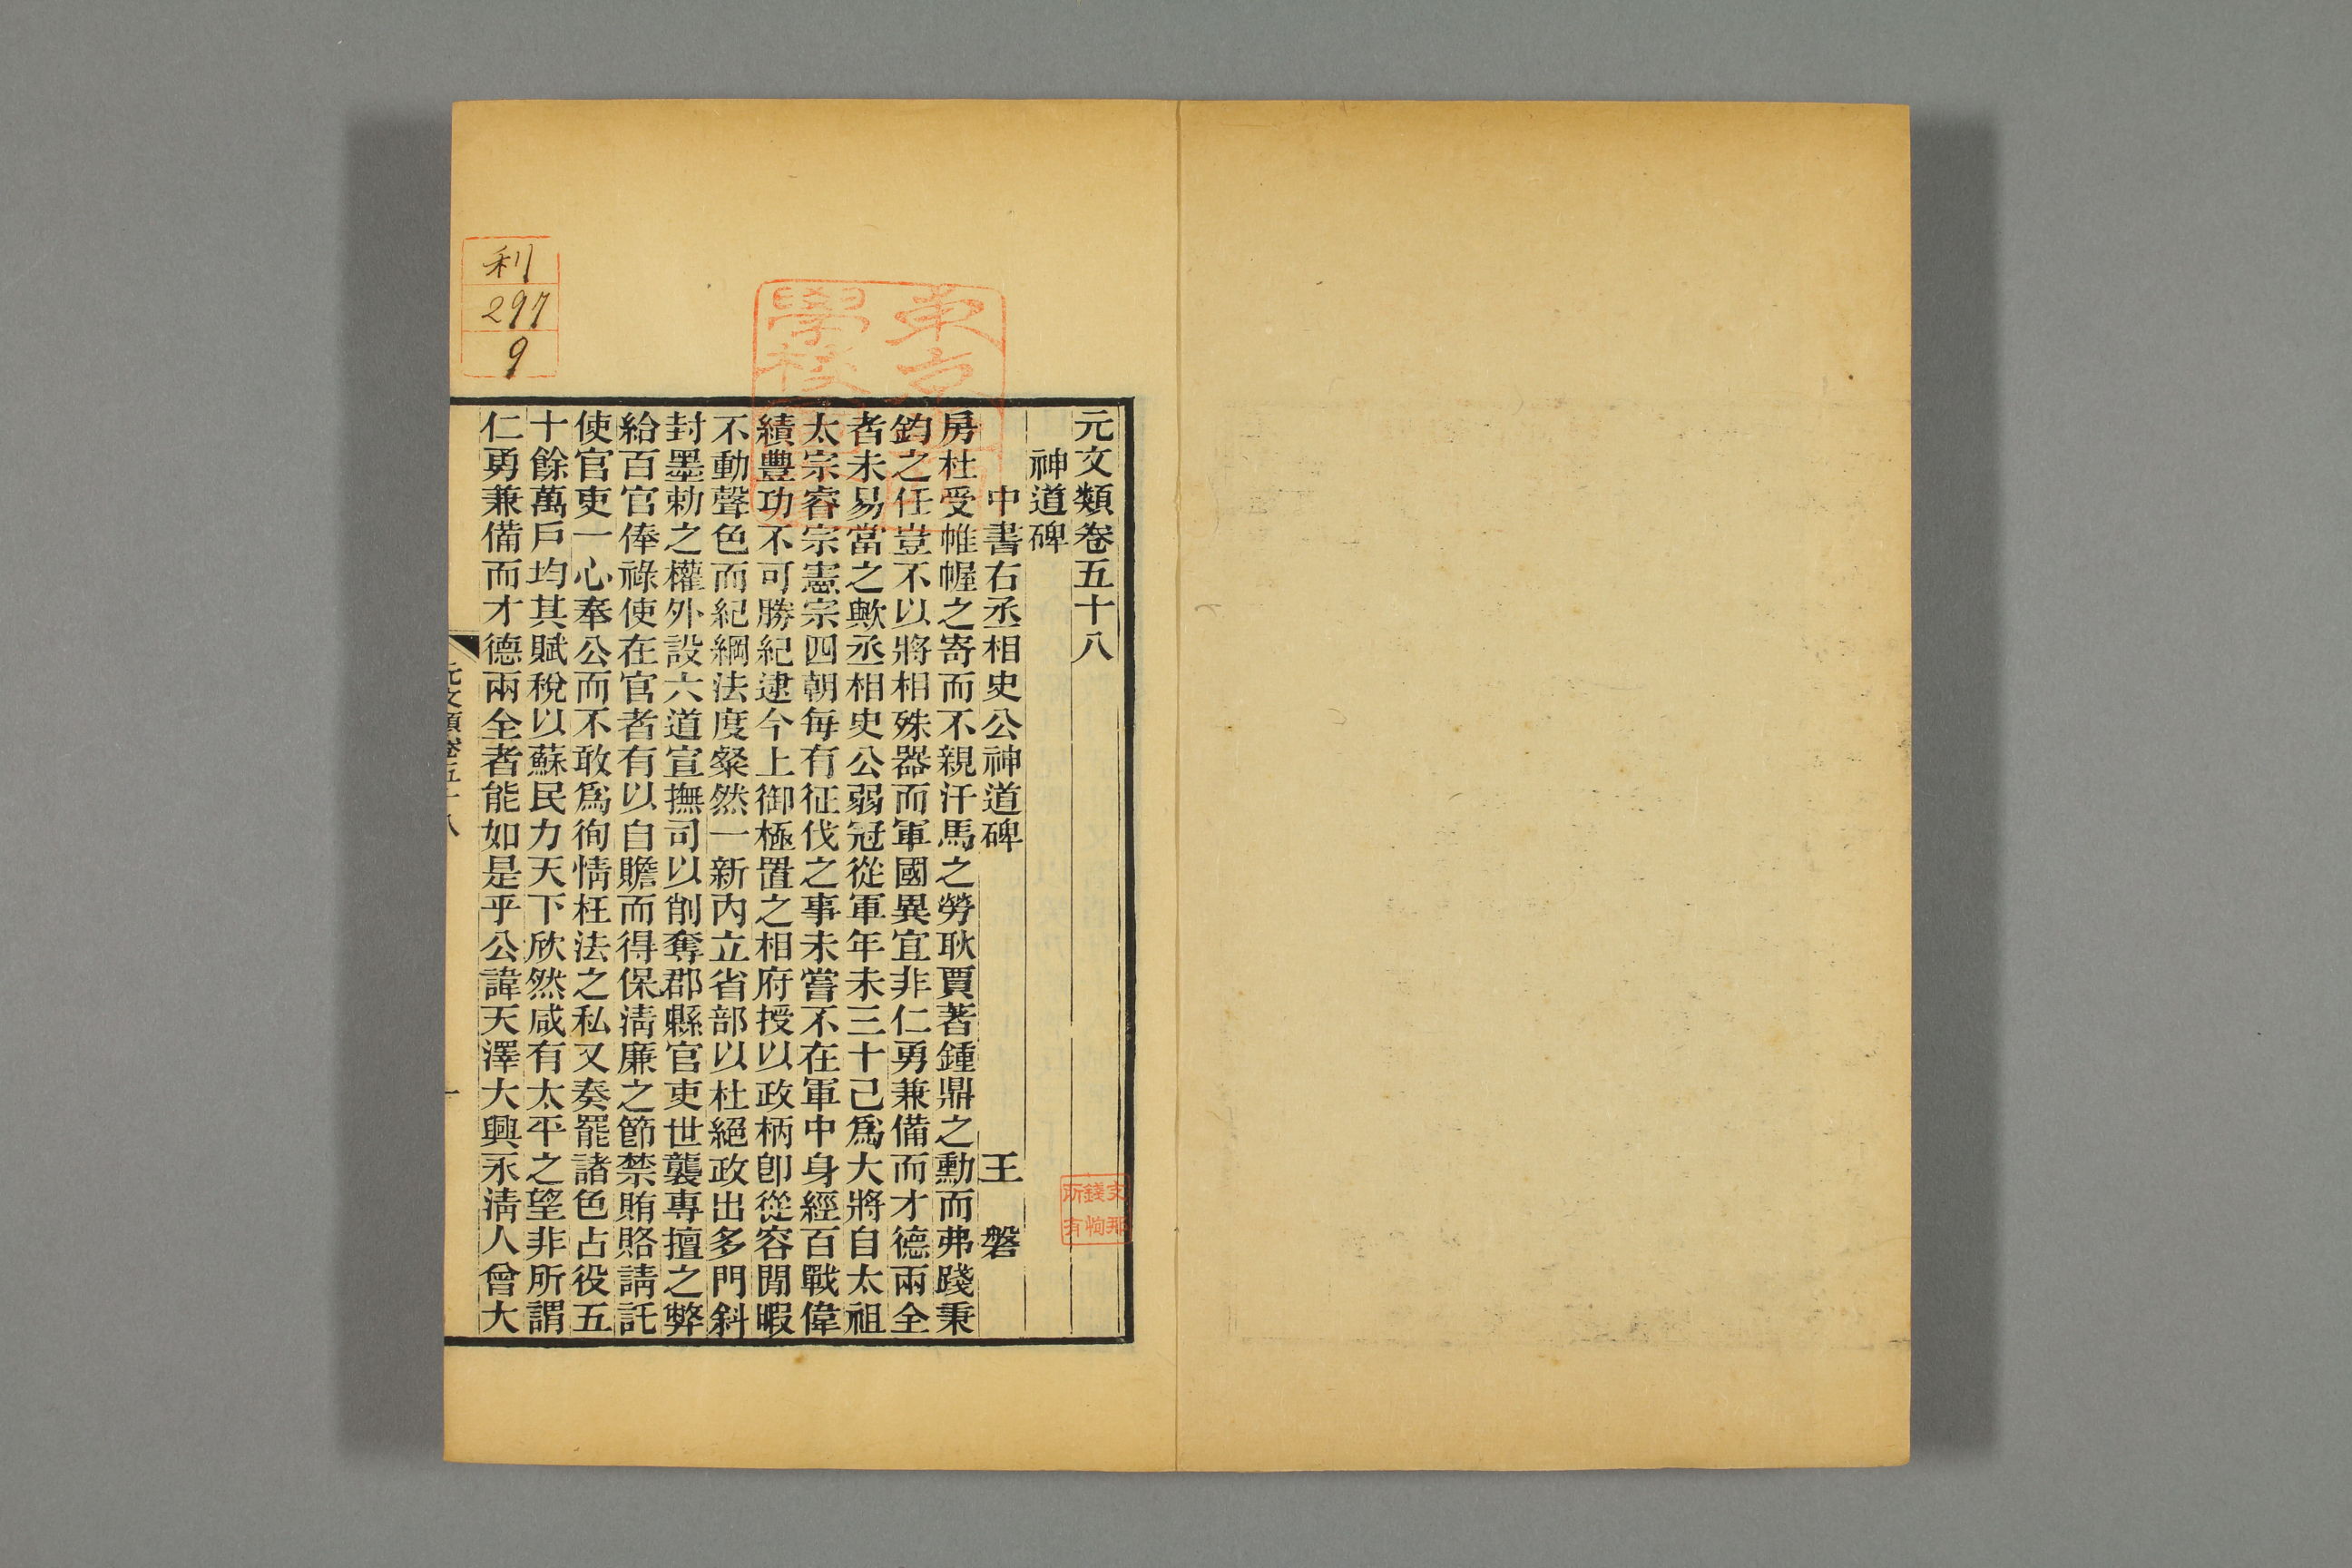 元文類卷五十八
神道碑
中書右丞相史公神道碑 王磐
房杜受帷幄之寄而不親汗馬之勞耿賈著鍾鼎之勳而弗踐秉
鈞之任豈不以將相殊器而軍國異宜非仁勇兼備而才德兩全
者未易當之歟丞相史公弱冠從軍年未三十已爲大將自太祖
太宗睿宗憲宗四朝每有征伐之事未嘗不在軍中身經百戰偉
績豐功不可勝紀逮今上御極置之相府授以政柄卽從容閒暇
不動聲色而紀綱法度粲然一新內立省部以杜絕政出多門斜
封墨勅之權外設六道宣撫司以削奪郡縣官吏世襲專擅之弊
給百官俸祿使在官者有以自贍而得保淸廉之節禁賄賂請託
使官吏一心奉公而不敢爲徇情枉法之私又奏罷諸色占役五
十餘萬戶均其賦稅以蘇民力天下欣然咸有太平之望非所謂
仁勇兼備而才德兩全者能如是乎公諱天澤大興永淸人曾大
元文類卷五十八
一
利
297
9
支那
錢恂
所有